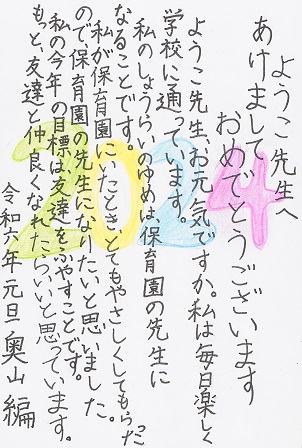 ようこ先生へ
あけまして
おめでとうございます
ようこ先生、お元気ですか。私は毎日楽しく
学校に通っています。
私のしょうらいのゆめは、保育園の先生に
なることです。
私が保育園にいたとき、とてもやさしくしてもらった
ので、保育園の先生になりたいと思いました。
私の今年の目標は、友達をふやすことです。
もっと、友達と仲良くなれたらいいと思っています。
令和六年元旦 奥山編
2024